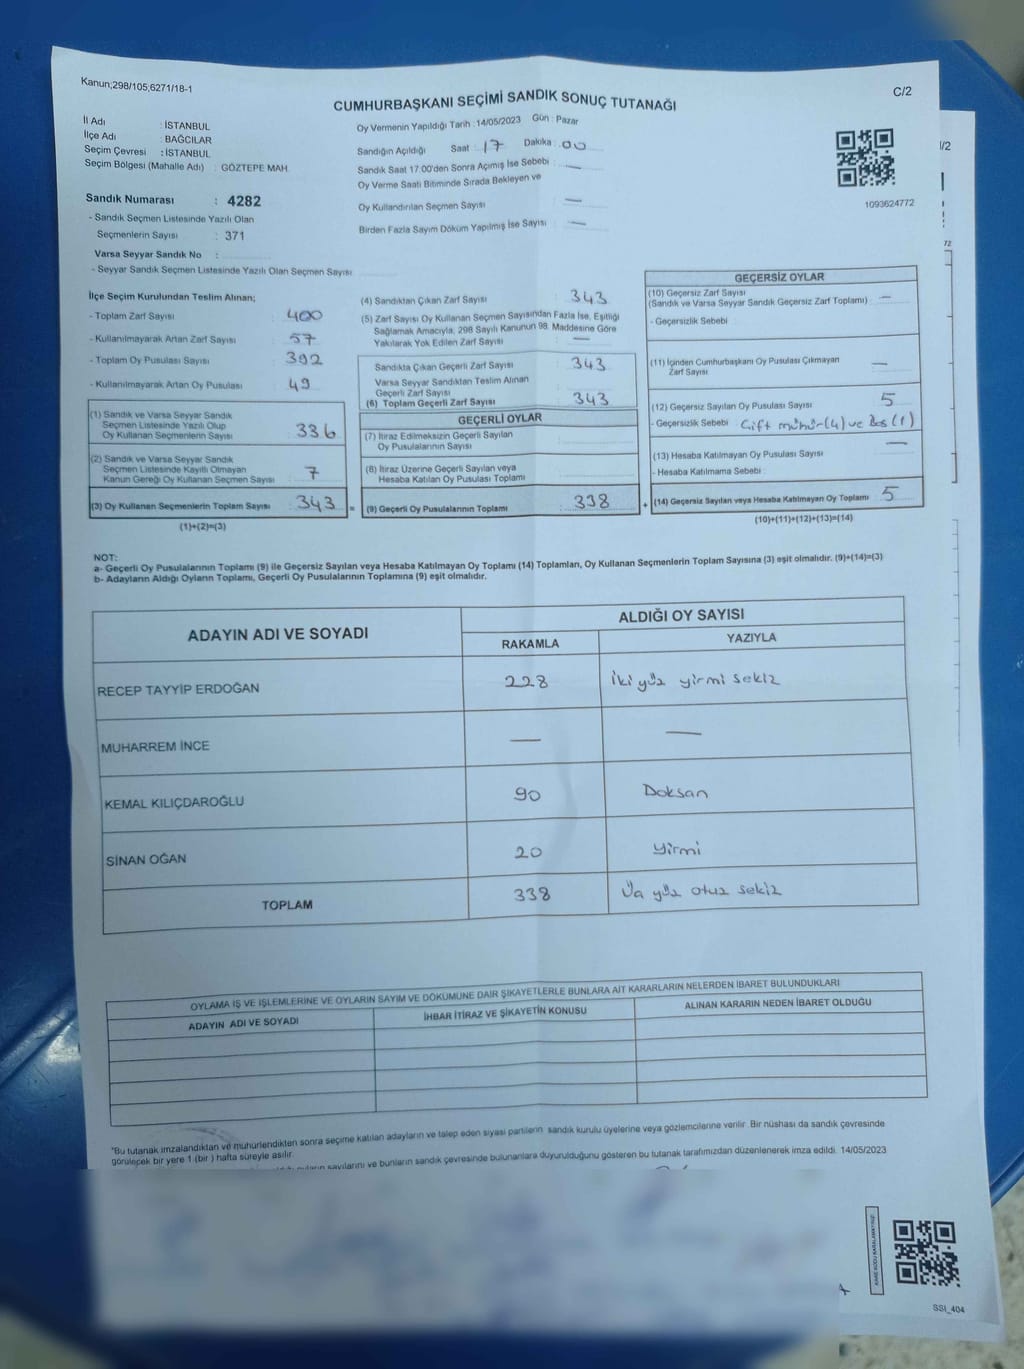 Kanun;298/105,6271/18-1
C/2
CUMHURBAŞKANI SEÇİMİ SANDIK SONUÇ TUTANAĞI
İl Adı : İSTANBUL
İlçe Adı : BAĞCILAR
Seçim Çevresi : İSTANBUL
Seçim Bölgesi (Mahalle Adı) : GÖZTEPE MAH.
Sandık Numarası : 4282
- Sandık Seçmen Listesinde Yazılı Olan
Seçmenlerin Sayısı : 371
Varsa Seyyar Sandık No :
- Seyyar Sandık Seçmen Listesinde Yazılı Olan Seçmen Sayısı
Oy Vermenin Yapıldığı Tarih : 14/05/2023 Gün : Pazar
Sandığın Açıldığı Saat : 17 Dakika : 00
Sandık Saat 17.00'den Sonra Açımış İse Sebebi : —
Oy Verme Saati Bitiminde Sırada Bekleyen ve
Oy Kullandırılan Seçmen Sayısı —
Birden Fazla Sayım Döküm Yapılmış İse Sayısı —
1093624772
/2
72
İlçe Seçim Kurulundan Teslim Alınan;
- Toplam Zarf Sayısı : 400
- Kullanılmayarak Artan Zarf Sayısı : 57
- Toplam Oy Pusulası Sayısı : 392
- Kullanılmayarak Artan Oy Pusulası : 49
(1) Sandık ve Varsa Seyyar Sandık
Seçmen Listesinde Yazılı Olup
Oy Kullanan Seçmenlerin Sayısı 336
(2) Sandık ve Varsa Seyyar Sandık
Seçmen Listesinde Kayıtlı Olmayan
Kanun Gereği Oy Kullanan Seçmen Sayısı 7
(3) Oy Kullanan Seçmenlerin Toplam Sayısı : 343 =
(1)+(2)=(3)
(4) Sandıktan Çıkan Zarf Sayısı : 343
(5) Zarf Sayısı Oy Kullanan Seçmen Sayısından Fazla İse, Eşitliği
Sağlamak Amacıyla, 298 Sayılı Kanunun 98. Maddesine Göre
Yakılarak Yok Edilen Zarf Sayısı : —
Sandıkta Çıkan Geçerli Zarf Sayısı : 343
Varsa Seyyar Sandıktan Teslim Alınan
Geçerli Zarf Sayısı
(6) Toplam Geçerli Zarf Sayısı : 343
GEÇERLİ OYLAR
(7) İtiraz Edilmeksizin Geçerli Sayılan
Oy Pusulasının Sayısı
(8) İtiraz Üzerine Geçerli Sayılan veya
Hesaba Katılan Oy Pusulası Toplamı
(9) Geçerli Oy Pusulalarının Toplamı : 338 +
GEÇERSİZ OYLAR
(10) Geçersiz Zarf Sayısı
(Sandık ve Varsa Seyyar Sandık Geçersiz Zarf Toplamı) —
- Geçersizlik Sebebi :
(11) İçinden Cumhurbaşkanı Oy Pusulası Çıkmayan
Zarf Sayısı —
(12) Geçersiz Sayılan Oy Pusulası Sayısı : 5
- Geçersizlik Sebebi : Çift mühür(4) ve Boş (1)
(13) Hesaba Katılmayan Oy Pusulası Sayısı —
- Hesaba Katılmama Sebebi :
(14) Geçersiz Sayılan veya Hesaba Katılmayan Oy Toplamı 5
(10)+(11)+(12)+(13)=(14)
NOT:
a- Geçerli Oy Pusulalarının Toplamı (9) ile Geçersiz Sayılan veya Hesaba Katılmayan Oy Toplamı (14) Toplamları, Oy Kullanan Seçmenlerin Toplam Sayısına (3) eşit olmalıdır. (9)+(14)=(3)
b- Adayların Aldığı Oyların Toplamı, Geçerli Oy Pusulalarının Toplamına (9) eşit olmalıdır.
ADAYIN ADI VE SOYADI
ALDIĞI OY SAYISI
RAKAMLA YAZIYLA
RECEP TAYYİP ERDOĞAN 228 İki yüz yirmi sekiz
MUHARREM İNCE — —
KEMAL KILIÇDAROĞLU 90 Doksan
SİNAN OĞAN 20 Yirmi
TOPLAM 338 Üç yüz otuz sekiz
OYLAMA İŞ VE İŞLEMLERİNE VE OYLARIN SAYIM VE DÖKÜMÜNE DAİR ŞİKAYETLERLE BUNLARA AİT KARARLARIN NELERDEN İBARET BULUNDUKLARI
ADAYIN ADI VE SOYADI İHBAR İTİRAZ VE ŞİKAYETİN KONUSU ALINAN KARARIN NEDEN İBARET OLDUĞU
*Bu tutanak imzalandıktan ve mühürlendikten sonra seçime katılan adayların ve talep eden siyasi partilerin sandık kurulu üyelerine veya gözlemcilerine verilir. Bir nüshası da sandık çevresinde
görülecek bir yere 1 (bir) hafta süreyle asılır.
sayılarını ve bunların sandık çevresinde bulunanlara duyurulduğunu gösteren bu tutanak tarafımızdan düzenlenerek imza edildi. 14/05/2023
SSI_404